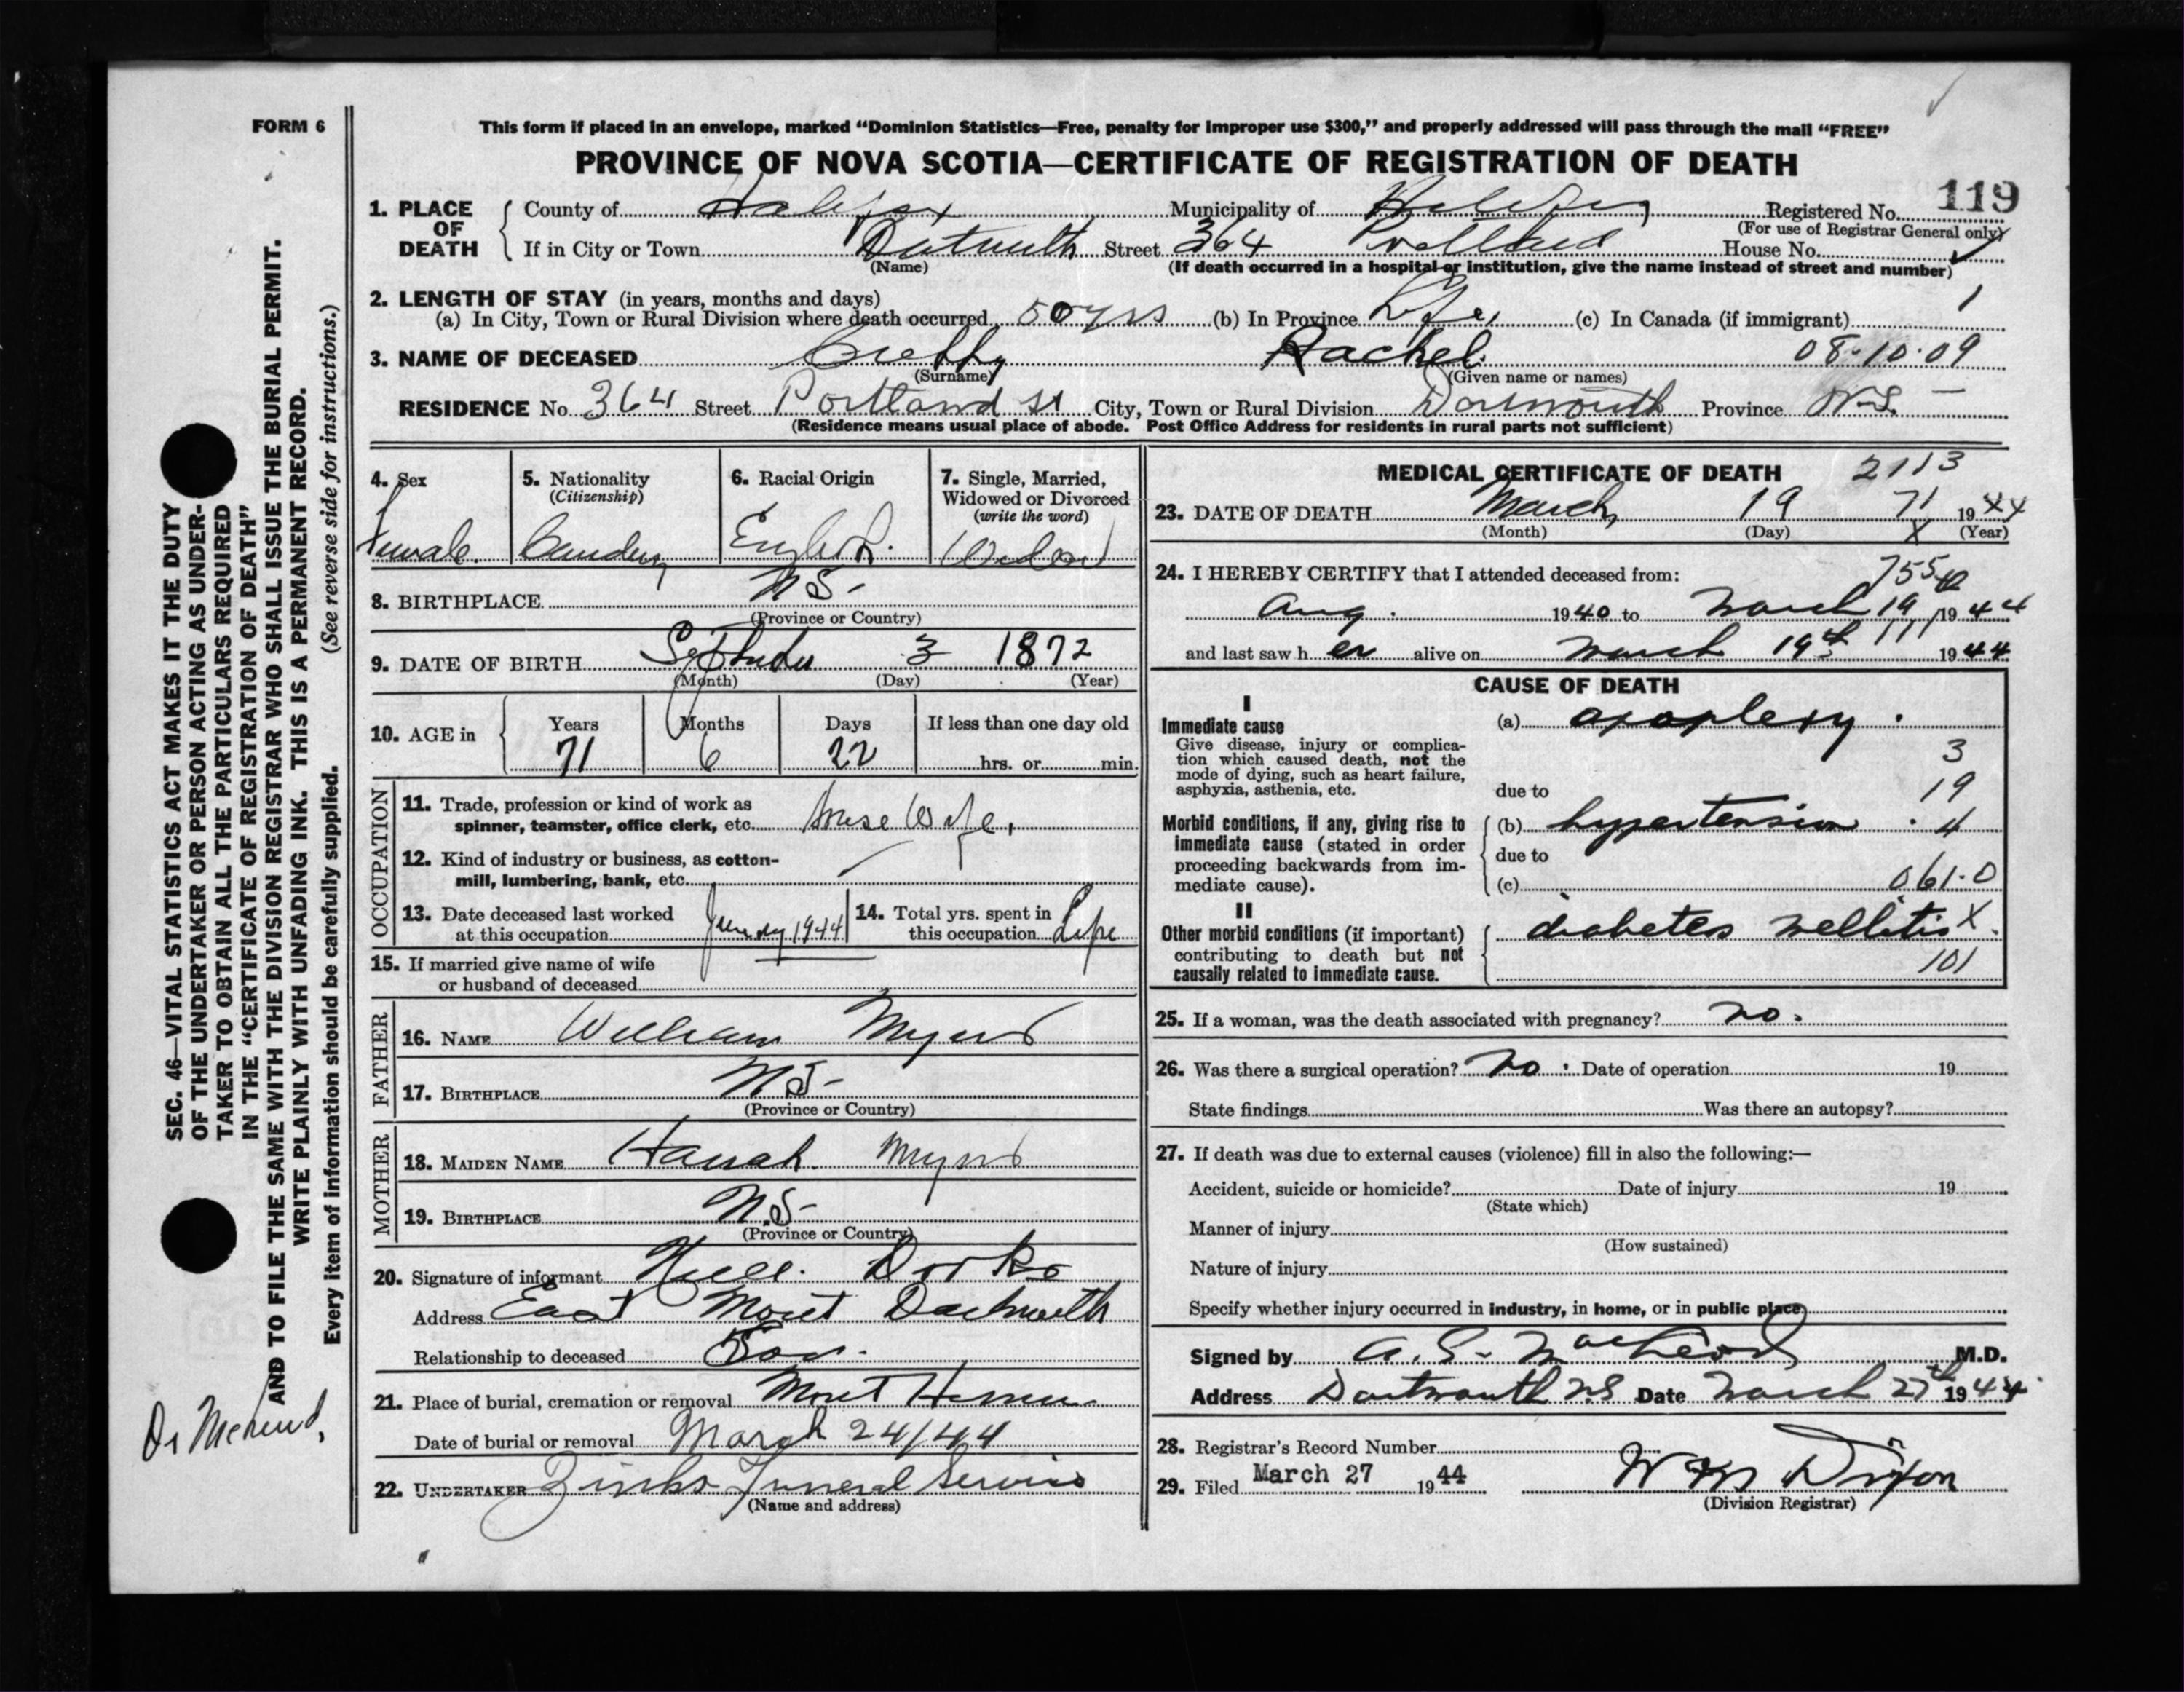 FORM 6
This form if placed in an envelope, marked “Dominion Statistics—Free, penalty for improper use $300,” and properly addressed will pass through the mail “FREE”
PROVINCE OF NOVA SCOTIA—CERTIFICATE OF REGISTRATION OF DEATH
119
1. PLACE OF DEATH County of Halifax Municipality of Halifax Registered No.
(For use of Registrar General only)
If in City or Town Dartmouth Street 364 Portland House No.
(Name) (If death occurred in a hospital or institution, give the name instead of street and number)
2. LENGTH OF STAY (in years, months and days) 1
(a) In City, Town or Rural Division where death occurred 50 yrs (b) In Province Life, (c) In Canada (if immigrant)
3. NAME OF DECEASED Rachel 08·10·09
(Surname) (Given name or names)
RESIDENCE No. 364 Street Portland St City, Town or Rural Division Dartmouth Province N.S. —
(Residence means usual place of abode. Post Office Address for residents in rural parts not sufficient)
4. Sex
Female.
5. Nationality
(Citizenship)
6. Racial Origin
English.
7. Single, Married,
Widowed or Divorced
(write the word)
8. BIRTHPLACE N S -
(Province or Country)
9. DATE OF BIRTH September 3 1872
(Month) (Day) (Year)
10. AGE in Years Months Days If less than one day old
71 6 22 hrs. or min.
OCCUPATION
11. Trade, profession or kind of work as
spinner, teamster, office clerk, etc. House Wife,
12. Kind of industry or business, as cotton-
mill, lumbering, bank, etc.
13. Date deceased last worked
at this occupation 1944
14. Total yrs. spent in
this occupation Life
15. If married give name of wife
or husband of deceased
FATHER
16. NAME William Myers
17. BIRTHPLACE N S -
(Province or Country)
MOTHER
18. MAIDEN NAME Hannah Myers
19. BIRTHPLACE N.S-
(Province or Country)
20. Signature of informant
Address East Dartmouth
Relationship to deceased Son.
21. Place of burial, cremation or removal Mount Hermon
Date of burial or removal March 24/44
22. UNDERTAKER Zinks Funeral Service
(Name and address)
MEDICAL CERTIFICATE OF DEATH 2113
23. DATE OF DEATH March, 19 71 1944
(Month) (Day) X (Year)
24. I HEREBY CERTIFY that I attended deceased from:
Aug. 1940 to March 19 1944
and last saw h er alive on March 19th 1944
CAUSE OF DEATH
I
Immediate cause (a) apoplexy.
Give disease, injury or complica-
tion which caused death, not the
mode of dying, such as heart failure,
asphyxia, asthenia, etc.
3
due to 19
Morbid conditions, if any, giving rise to (b) hypertension. 4
immediate cause (stated in order
proceeding backwards from im-
mediate cause).
due to
(c) 061·0
II
Other morbid conditions (if important) diabetes mellitis X.
contributing to death but not
causally related to immediate cause.
101
25. If a woman, was the death associated with pregnancy? no.
26. Was there a surgical operation? no. Date of operation 19
State findings Was there an autopsy?
27. If death was due to external causes (violence) fill in also the following:—
Accident, suicide or homicide? Date of injury 19
(State which)
Manner of injury
(How sustained)
Nature of injury
Specify whether injury occurred in industry, in home, or in public place
Signed by A. S. MacLeod M.D.
Address Dartmouth N.S Date March 27th 1944
28. Registrar's Record Number
29. Filed March 27 1944 W M Dixon
(Division Registrar)
SEC. 46—VITAL STATISTICS ACT MAKES IT THE DUTY
OF THE UNDERTAKER OR PERSON ACTING AS UNDER-
TAKER TO OBTAIN ALL THE PARTICULARS REQUIRED
IN THE “CERTIFICATE OF REGISTRATION OF DEATH”
AND TO FILE THE SAME WITH THE DIVISION REGISTRAR WHO SHALL ISSUE THE BURIAL PERMIT.
WRITE PLAINLY WITH UNFADING INK. THIS IS A PERMANENT RECORD.
Every item of information should be carefully supplied. (See reverse side for instructions.)